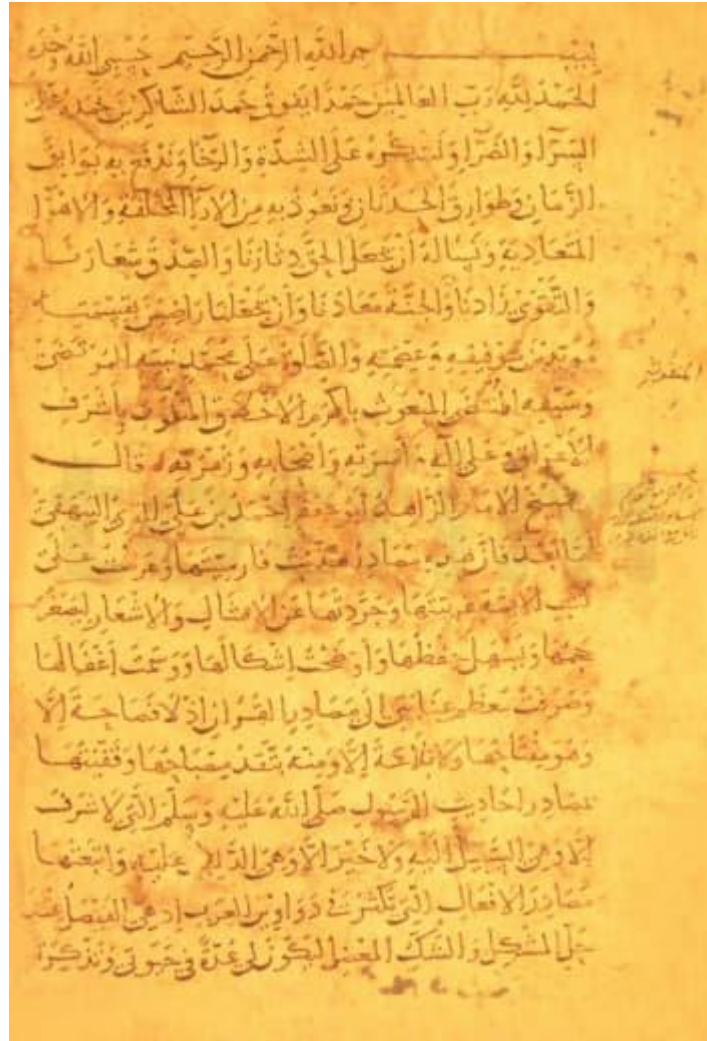 بسم الله الرحمن الرحيم حسبي الله وحده
الحمد لله رب العالمين حمدا يفوق حمد الشاكرين نحمده على
السرا والضرا ونشكره على الشدة والرخا وندفع به بوايق
الزمان وطوارق الحدثان ونعوذ به من الارآ المختلفة والاهوآ
المتعادية ونساله ان يجعل الحق دثارنا والصدق شعارنا
والتقوى زادنا والجنة معادنا وان يجعلنا راضين بقسمته
بتوفيقه وعصمته والصلوة على محمد نبيه المرتضى
وسيفه المنتضى المبعوث باكرم الاخلاق المنعوت باشرف
الاعراق وعلى اله واسرته واصحابه وزمرته قال
الشيخ الامام الزاهد ابو جعفر احمد بن علي المقرئ البيهقي
اما بعد فان هذه مصادر هذبت فارسيتها وعرضت على
كتب الائمة عربيتها وجردتها عن الامثال والاشعار ليصغر
حجمها ويسهل حفظها واوضحت اشكالها ووسمت اغفالها
وصرفت معظم عنايتي الى مصادر القران اذ لا فصاحة الا
وهو مفتاحها ولا بلاغة الا ومنه يتقد مصباحها وقفيتها
بمصادر احاديث الرسول صلى الله عليه وسلم التي لا شرف
الا وهى السبيل اليه ولا خير الا وهى الدليل عليه واتبعتها
مصادر الافعال التي تكثر في دواوين العرب اذ هي الفيصل عند
حل المشكل والشك المعضل ليكون لي عدة في حيوتي وتذكرة